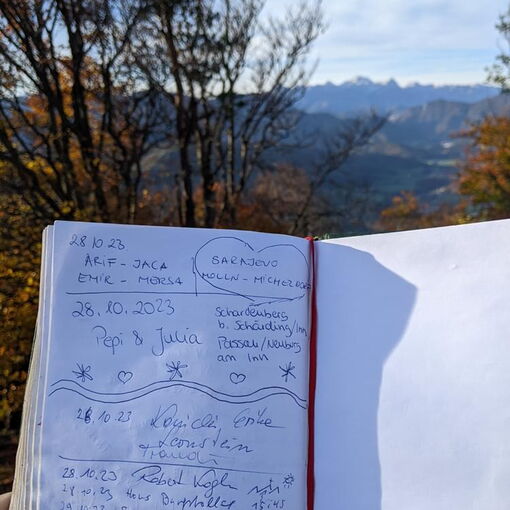 28.10.23
ARIF - JACA
EMIR - MERSA
SARAJEVO
MOLLN - MICHELDORF
28.10.2023
Pepi & Julia
Schardenberg
b. Schärding/Inn
Passau/Neuburg
am Inn
28.10.23 Erika
Leonstein
28.10.23 Robert
28.10.23 15:45